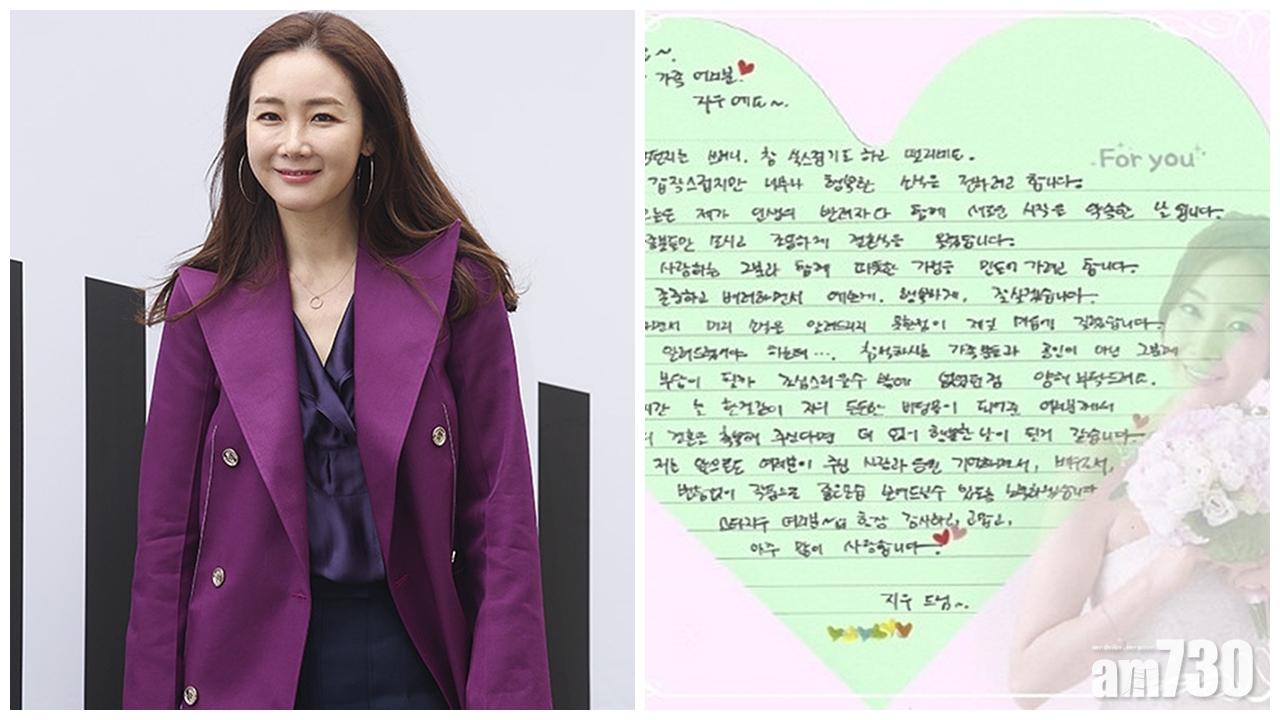 가족 여러분
지우예요~.
쓰려니. 참 쑥스럽기도 하고 떨리네요.
For you
갑작스럽지만 너무나 행복한 소식을 전하려고 합니다.
오늘은 제가 인생의 반려자와 함께 새로운 시작을 약속한 날입니다.
모시고 조용하게 결혼식을 올렸습니다.
사랑하는 그분과 함께 따뜻한 가정을 만들어 가려고 합니다.
존중하고 배려하면서 예쁘게, 행복하게, 잘살겠습니다.
미리 소식을 알려드리지 못한점이 제일 마음에 걸렸습니다.
알려드렸어야 하는데..., 참석하시는 가족분들과 공인이 아닌 그분께
부담이 될까 조심스러울수 밖에 없었던점 양해 부탁드려요.
늘 한결같이 저의 든든한 버팀목이 되어준 여러분께서
결혼을 축복해 주신다면 더 없이 행복한 날이 될거 같습니다.
저는 앞으로도 여러분이 주신 사랑과 응원 기억하면서, 배우로서,
변함없이 작품으로 좋은모습 보여드릴수 있도록 노력하겠습니다
스타지우 여러분~ 항상 감사하고, 고맙고,
아주 많이 사랑합니다.
지우 드림~.
am730